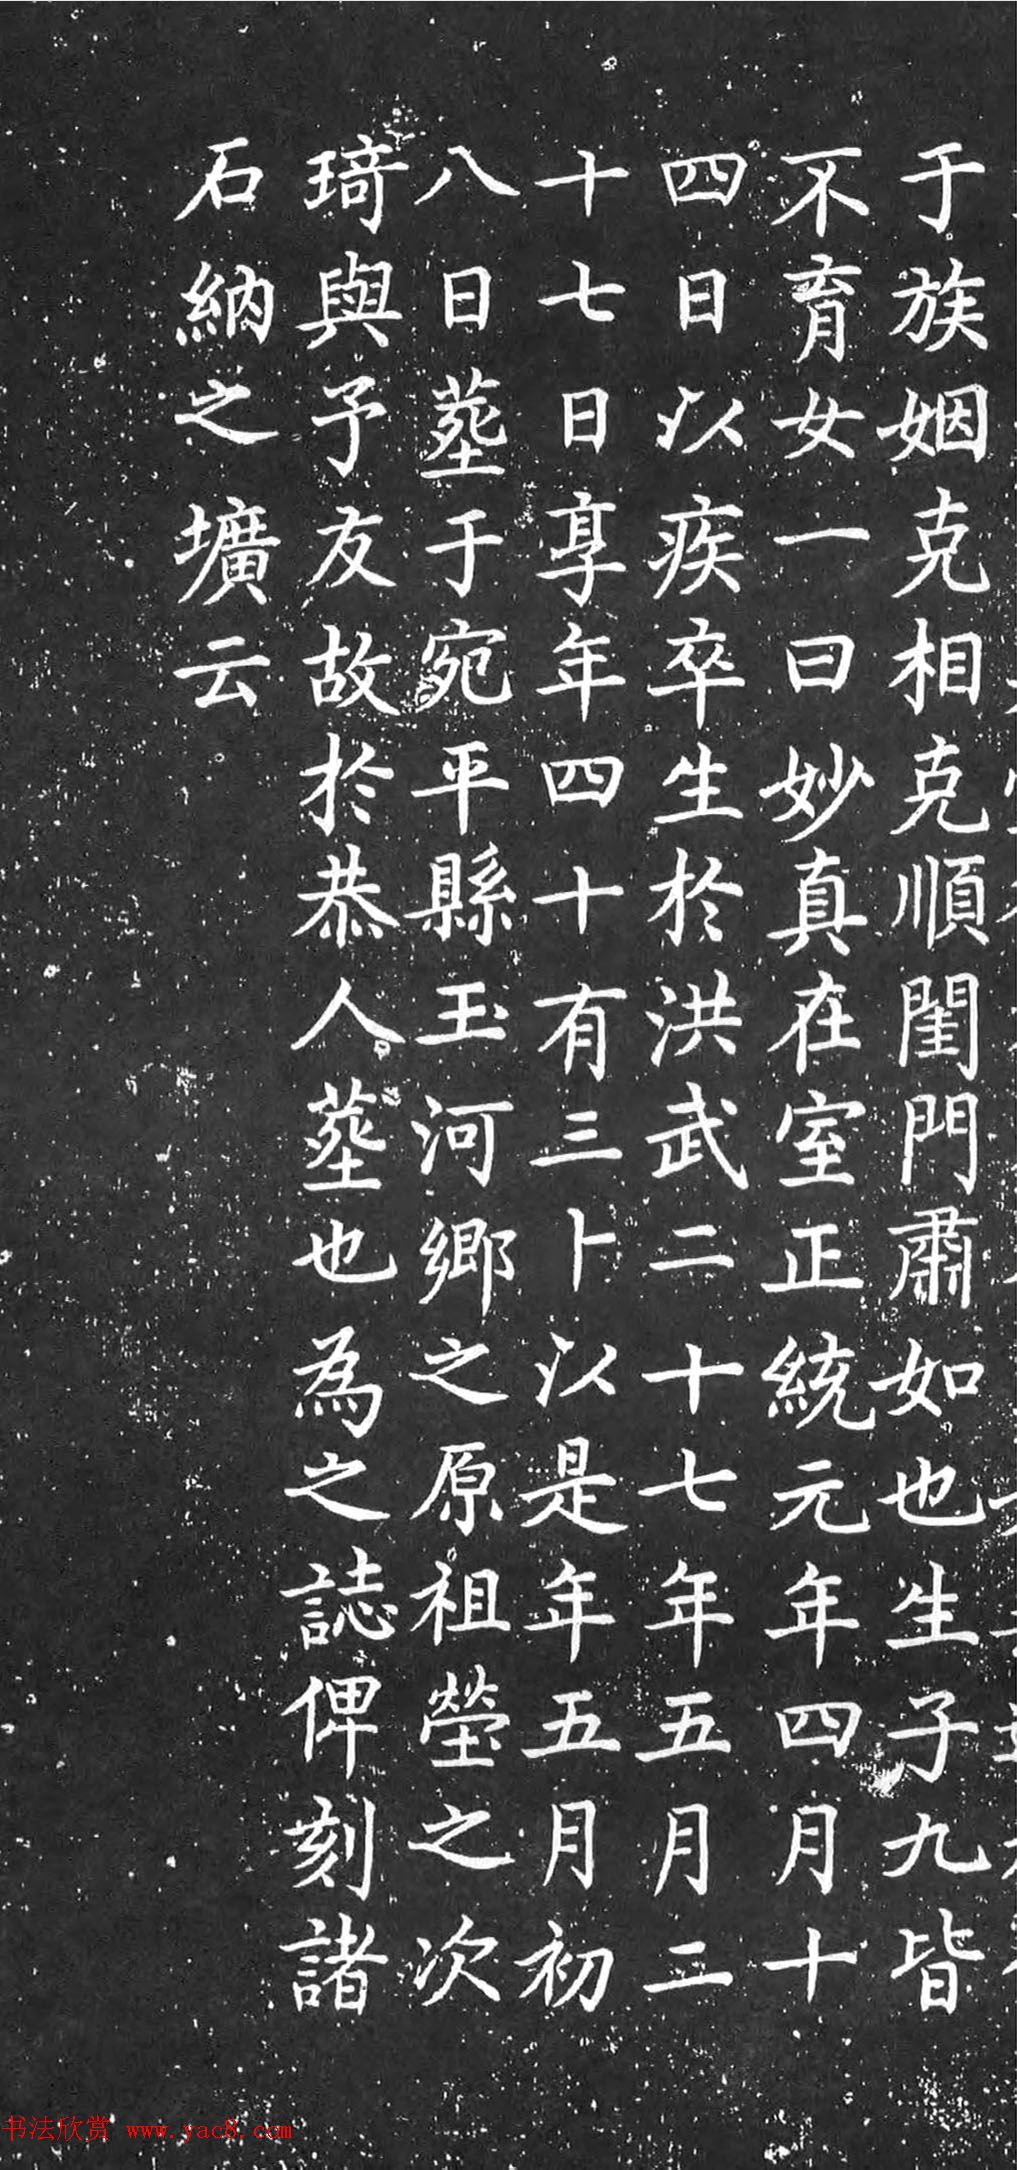 于族姻克相克順閨門肅如也生子九皆
不育女一曰妙真在室正統元年四月十
四日以疾卒生於洪武二十七年五月二
十七日享年四十有三卜以是年五月初
八日塟于宛平縣玉河鄉之原祖塋之次
琦與予友故於恭人塟也為之誌俾刻諸
石納之壙云
书法欣赏 www.yac8.com